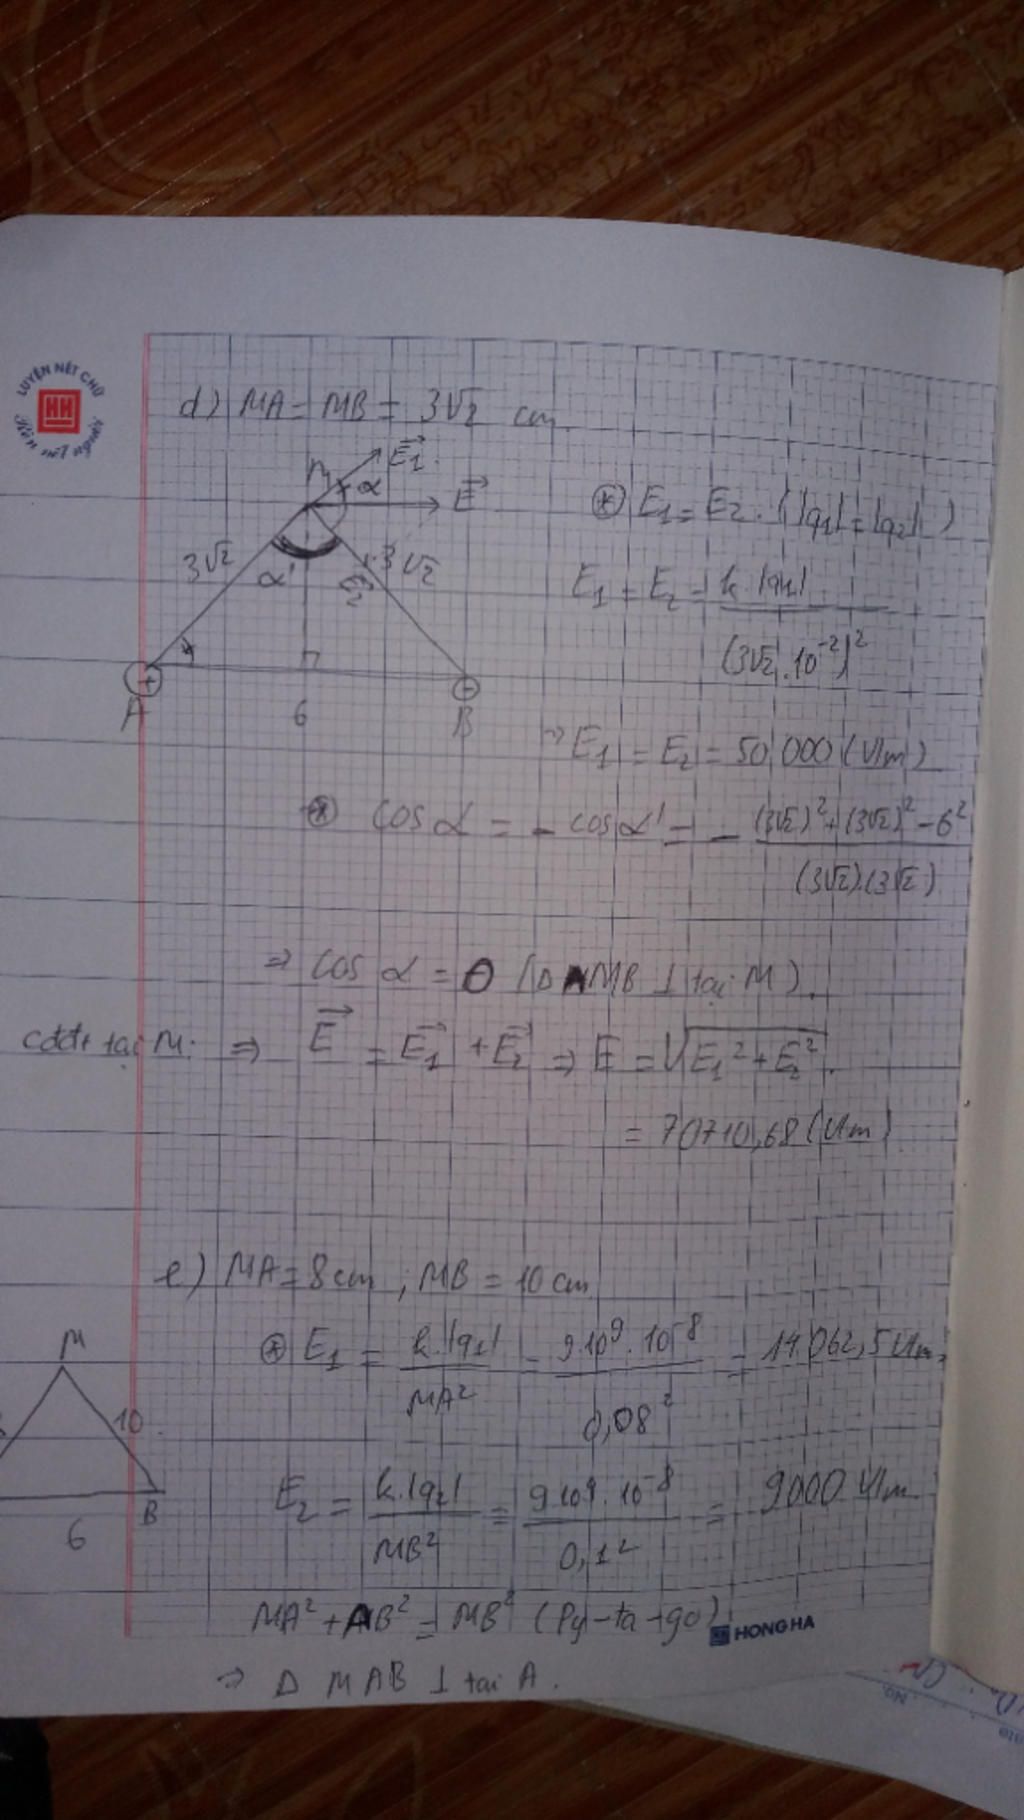 LUYỆN NÉT CHỮ
Rèn nết người
HH
d) MA = MB = 3√2 cm
M α E₁ E
3√2 α' E₂ 3√2
A + 6 B -
⊛ E₁ = E₂. (|q₁| = |q₂|)
E₁ = E₂ = k.|q₁| / (3√2.10⁻²)²
→ E₁ = E₂ = 50 000 (V/m)
⊛ cos α = - cos α' = - (3√2)² + (3√2)² - 6² / (3√2).(3√2)
⇒ cos α = 0 (Δ AMB ⊥ tại M).
cđđt tại M: ⇒ E = E₁ + E₂ ⇒ E = √E₁² + E₂².
= 70710,68 (V/m)
e) MA = 8 cm ; MB = 10 cm
⊛ E₁ = k.|q₁| / MA² = 9.10⁹.10⁻⁸ / 0,08² = 14.062,5 V/m,
M
10
B
6
E₂ = k.|q₂| / MB² = 9.10⁹.10⁻⁸ / 0,1² = 9000 V/m
MA² + AB² = MB² (Py-ta-go)
HONG HA
⇒ Δ MAB ⊥ tại A.